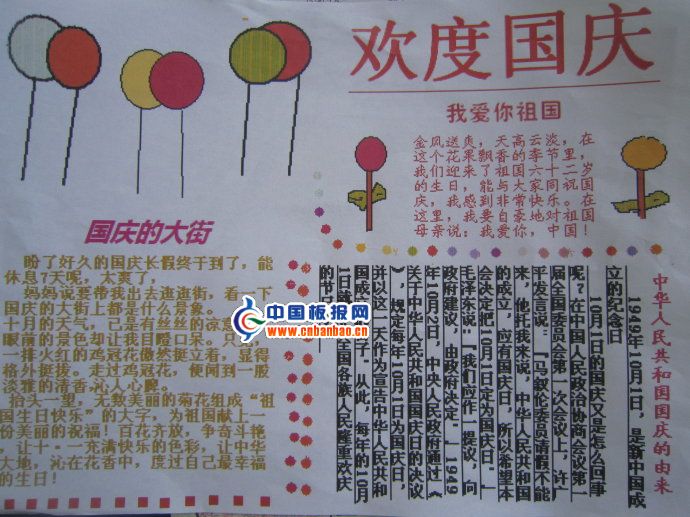 欢度国庆
我爱你祖国
金凤送爽，天高云淡，在
这个花果飘香的季节里，
我们迎来了祖国六十二岁
的生日，能与大家同祝国
庆，我感到非常快乐。在
这里，我要自豪地对祖国
母亲说：我爱你，中国！
国庆的大街
盼了好久的国庆长假终于到了，能
休息7天呢，太爽了，
妈妈说要带我出去逛逛街，看一下
国庆的大街上都是什么景象。
十月的天气，已是有丝丝的凉意
眼 却让我目瞪口呆。只
一排火红的鸡冠花傲然挺立着，显得
格外挺拔。走过鸡冠花，便闻到一股
淡雅的清香,沁人心脾。
抬头一望，无数美丽的菊花组成“祖
国生日快乐”的大字，为祖国献上一
份美丽的祝福！百花齐放，争奇斗艳
，让十一充满快乐的色彩，让中华
大地，沁在花香中，度过自己最幸福
的生日！
中国板报网
www.cnbanbao.cn
中华人民共和国国庆的由来
1949年10月1日，是新中国成
立的纪念日
10月1日的国庆又是怎么回事
呢？在中国人民政治协商会议第一
届全国委员会第一次会议上，许广
平发言说：“马叙伦委员请假不能
来，他托我来说，中华人民共和国
的成立，应有国庆日，所以希望本
会决定把10月1日定为国庆日。”
毛泽东说：“我们应作一提议，向
政府建议，由政府决定。”1949
年10月2日，中央人民政府通过《
关于中华人民共和国国庆日的决议
》，规定每年10月1日为国庆日，
并以这一天作为宣告中华人民共和
国成 子”从此，每年的10月
1日 国各族人民隆重欢庆
的节